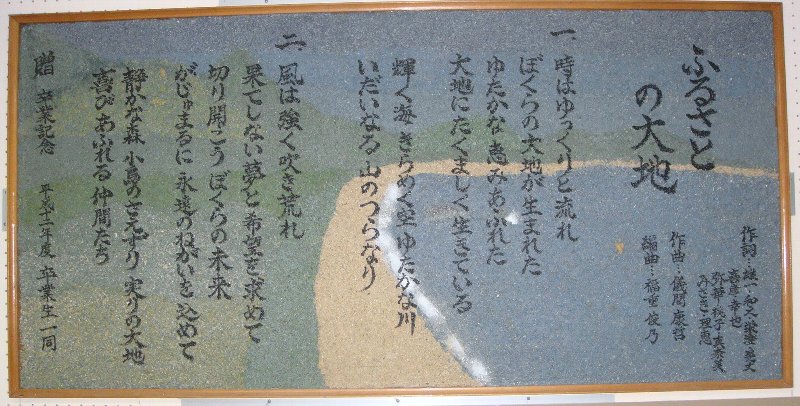 ふるさと
の大地
作曲…儀間康
編曲…福重俊乃
一、時はゆっくりと流れ
ぼくらの大地が生まれた
ゆたかな恵みあふれた
大地にたくましく生きている
輝く海きらめく空ゆたかな川
いだいなる山のつらなり
二、風は強く吹き荒れ
果てしない夢と希望を求めて
切り開こうぼくらの未来
がじゅまるに永遠のねがいを込めて
静かな森 小鳥のさえずり 実りの大地
喜びあふれる仲間たち
贈 卒業記念 平成十一年度 卒業生一同